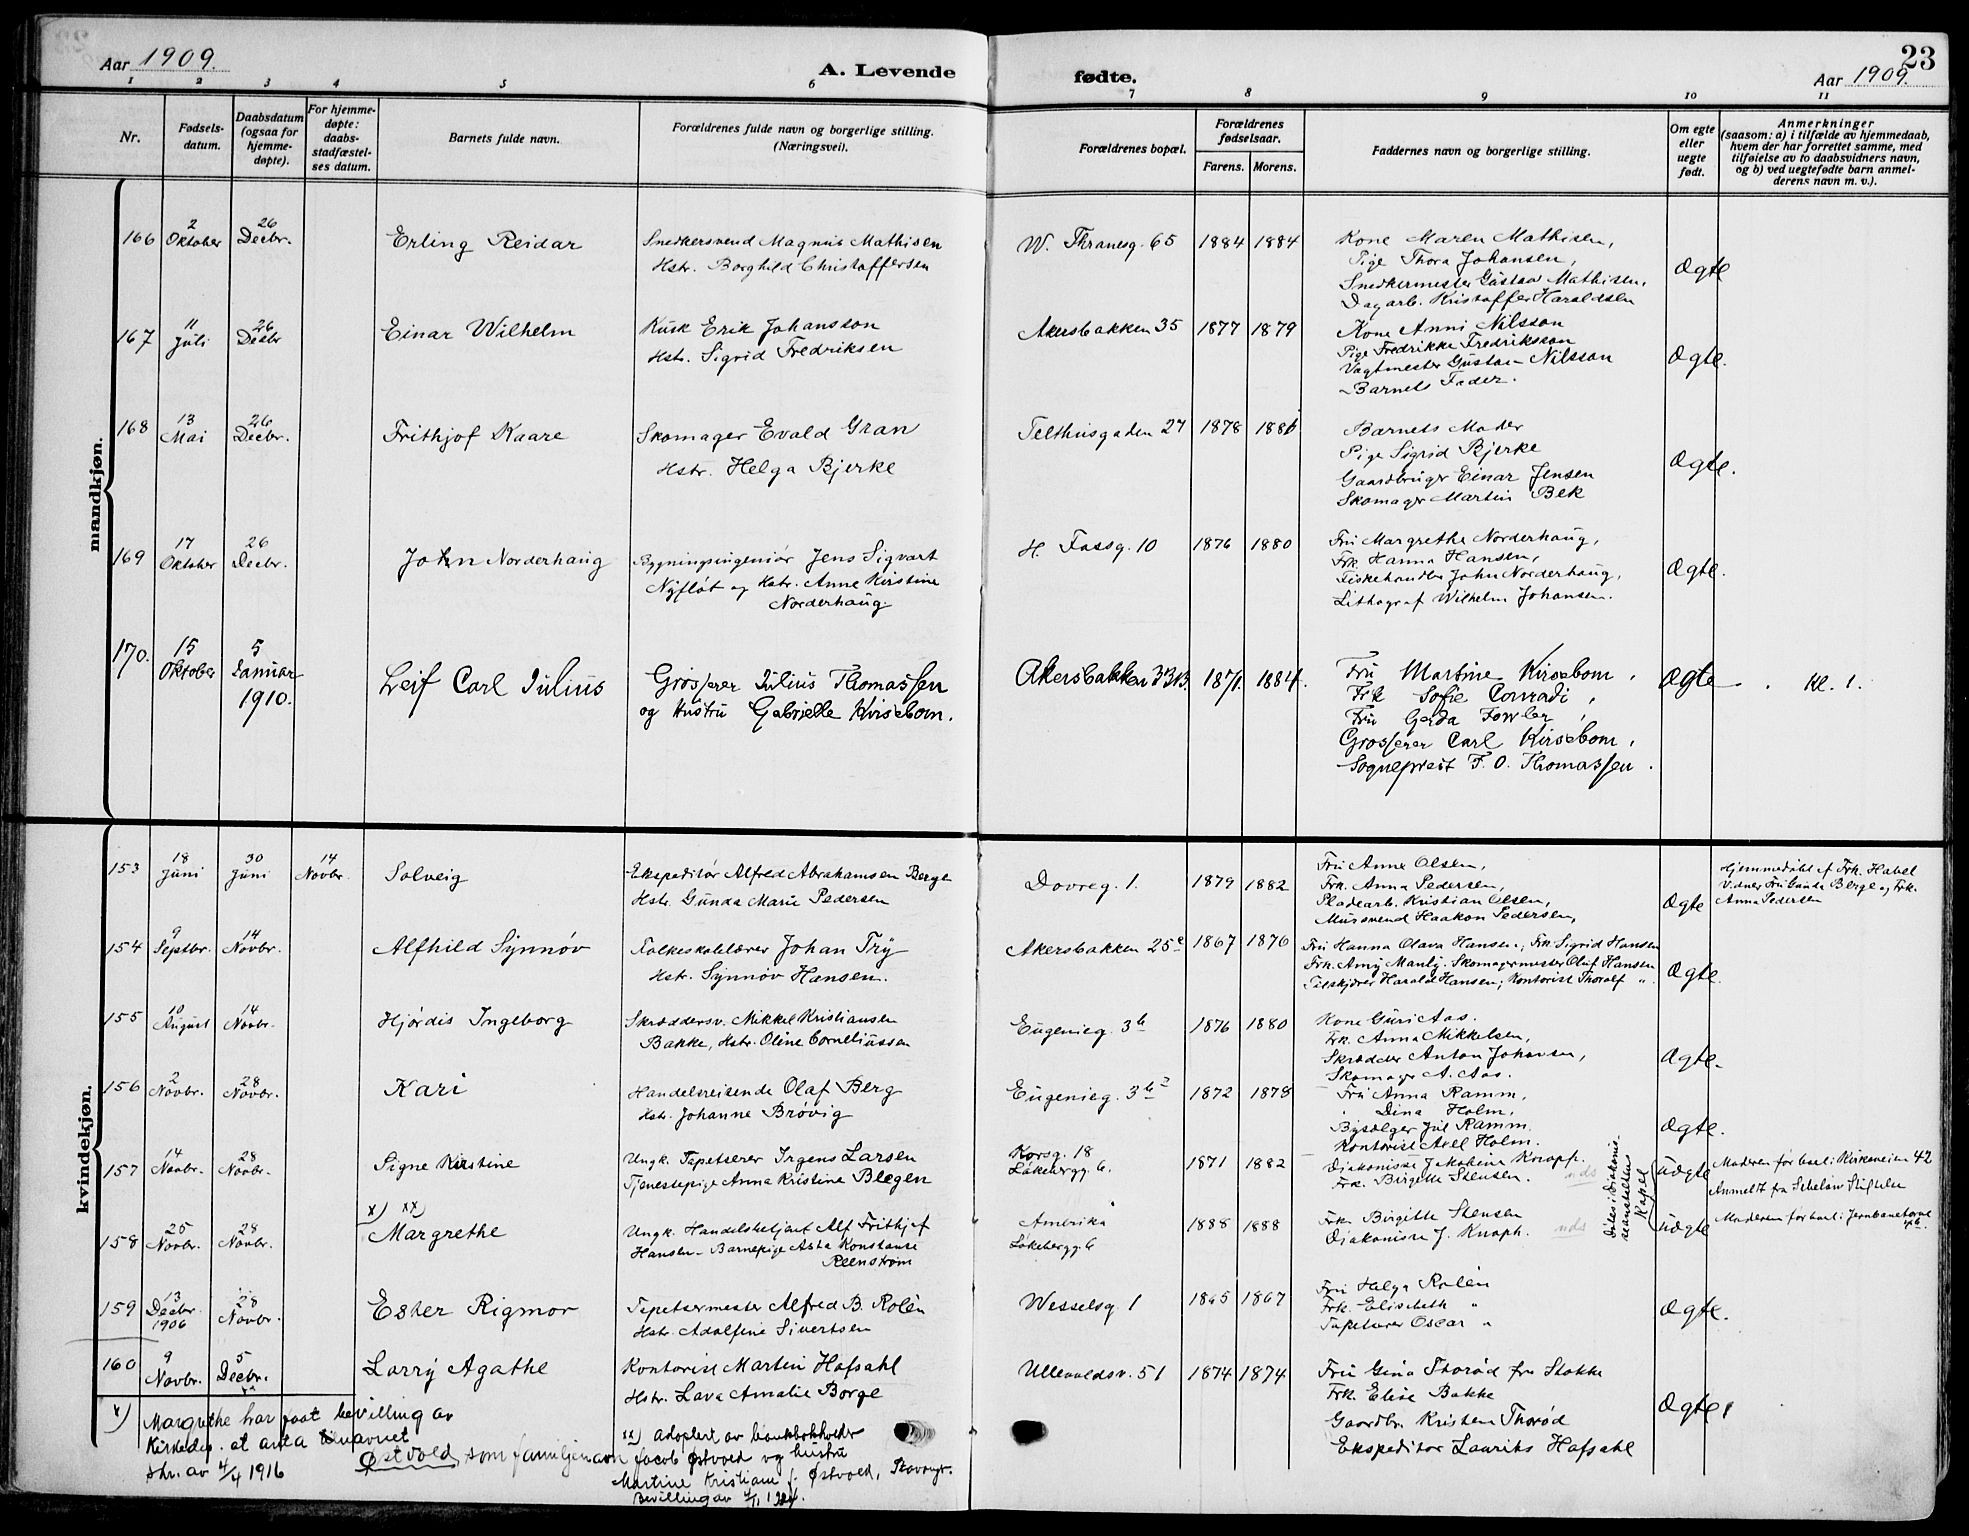 Aar 1909.
A. Levende
fødte.
23
Aar 1909.
1 2 3 4 5 6 7 8 9 10 11
Nr.
Fødsels-
datum.
Daabsdatum
(ogsaa for
hjemme-
døpte).
For hjemme-
døpte:
daabs-
stadfæstel-
ses datum.
Barnets fulde navn.
Forældrenes fulde navn og borgerlige stilling.
(Næringsvei).
Forældrenes bopæl.
Forældrenes
fødselsaar.
Farens. Morens.
Faddernes navn og borgerlige stilling.
Om egte
eller
uegte
født.
Anmerkninger
(saasom: a) i tilfælde av hjemmedaab,
hvem der har forrettet samme, med
tilføielse av to daabsvidners navn,
og b) ved uegtefødte barn anmel-
derens navn m. v.).
mandkjøn.
166
2
Oktober
26
Decbr.
Erling Reidar
Snedkersvend Magnus Mathisen
Hstr. Borghild Christoffersen
W. Thranesg. 65
1884 1884
Kone Maren Mathisen,
Pige Thora Johansen,
Snedkermester Gustav Mathisen,
Dagarb. Kristoffer Haraldsen
Ægte
167
11
Juli
26
Decbr
Einar Wilhelm
Kusk Erik Johansson
Hstr. Sigrid Fredriksen
Akersbakken 35
1877 1879
Kone Anni Nilsson
Pige Fredrikke Fredriksson
Vagtmester Gustav Nilsson
Barnets Fader.
Ægte.
168
13
Mai
26
Decbr.
Frithjof Kaare
Skomager Evald Gran
Hstr. Helga Bjerke
Telthusgaden 27
1878
Barnets Moder
Pige Sigrid Bjerke
Gaardbruger Einar Jensen
Skomager Martin Bek
Ægte.
169
17
Oktober
26
Decbr.
John Norderhaug
Bygningsingeniør Jens Sigvart
Nyfløt og Hstr. Anne Kirstine
Norderhaug.
H. Fossg. 10
1876 1880
Fru Margrethe Norderhaug,
Frk. Hanna Hansen,
Fiskehandler John Norderhaug,
Lithograf Wilhelm Johansen.
Ægte.
170.
15
Oktober
5
Januar
1910.
Leif Carl Julius
Grosserer Julius Thomassen
og Hustru Gabrielle Kirsebom.
Akersbakken 33B.
1871. 1884.
Fru Martine Kirsebom,
Frk Sofie Conradi,
Fru Gerda Fowler,
Grosserer Carl Kirsebom,
Sogneprest F. O. Thomassen.
Ægte
Kl. 1.
kvindekjøn.
153
18
Juni
30
Juni
14
Novbr.
Solveig
Ekspeditør Alfred Abrahamsen Berge
Hstr. Gunda Marie Pedersen
Dovreg. 1.
1879 1882
Fru Anne Olsen,
Frk. Anna Pedersen,
Pladearb. Kristian Olsen,
Mursvend Haakon Pedersen,
Ægte
Hjemmedøbt af Frk. Habel
Vidner Fru Gunda Berge og Frk.
Anna Pedersen
154
9
Septbr.
14
Novbr.
Alfhild Synnøv
Folkeskolelærer Johan Try
Hstr. Synnøv Hansen.
Akersbakken 25c
1867 1876
Fru Hanna Olava Hansen; Frk. Sigrid Hansen
Frk. Amy Manly. Skomagermester Oluf Hansen
Tilskjærer Harald Hansen; Kontorist Thoralf "
Ægte.
155
10
August
14
Novbr.
Hjørdis Ingeborg
Skræddersv. Mikkel Kristiansen
Bakke, Hstr. Oline Corneliussen
Eugenieg. 3b
1876 1880
Kone Guri Aas.
Frk. Anna Mikkelsen,
Skrædder Anton Johansen,
Skomager A. Aas.
Ægte.
156
2
Novbr.
28
Novbr.
Kari
Handelsreisende Olaf Berg
Hstr. Johanne Brøvig
Eugenieg. 3b
1872 1878
Fru Anna Ramm,
" Dina Holm,
Bysælger Jul Ramm
Kontorist Axel Holm.
Ægte.
157
14
Novbr.
28
Novbr.
Signe Kirstine
Ungk. Tapetserer Irgens Larsen
Tjenestepige Anna Kristine Blegen
Korsg. 18
Løkebergg. 6.
1871 1882
Diakonisse Jakobine Knoph.
Frk. Birgitte Stensen.
Døbt i Diakonis-
seanstaltens
Kapel
uægte
Moderen før barl: Kirkeveien 42
Anmeldt fra Sehelow Stiftelse
158
25
Novbr.
28
Novbr.
x) xx)
Margrethe
Ungk. Handelsbetjent Alf Frithjof
Hansen – Barnepige Asta Konstanse
Reenstrøm
Amerika
Løkebergg. 6
1888 1888
Frk. Birgitte Stensen
Diakonisse J. Knoph.
uægte
Moderen før barl: Jernbanetorvet
4b.
159
13
Decbr.
1906
28
Novbr.
Esther Rigmor
Tapetsermester Alfred B. Rolén
Hstr. Adolfine Sivertsen
Wesselsg. 1
1865 1867
Fru Helga Rolén
Frk. Elisabeth "
Tapetserer Oscar "
Ægte.
160
9
Novbr.
5
Decbr.
Larry Agathe
Kontorist Martin Hofsahl
Hstr. Lava Amalie Borge
Ullevoldsv. 51
1874 1874
Fru Gina Thorød fra Stokke
Frk. Elise Bakke
Gaardbr. Kristen Thorød
Ekspeditør Laurits Hofsahl
Ægte
x) Margrethe har faat bevilling av
Kirkedep. at anta navnet
Østvold som familjenavn
skr. av 4/4 1916
xx) Adoptert av bankbokholder
Jacob Østvold og hustru
Martine Kristiane f. Østvold, Stavanger.
Bevilling av